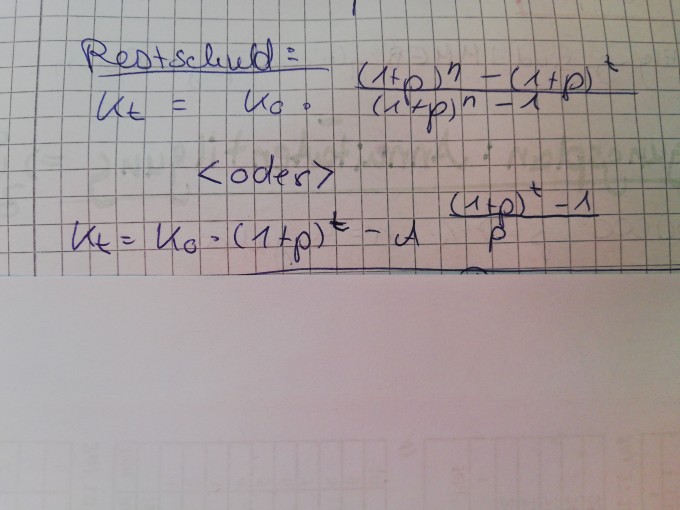 Restschuld:
K_t = K_0 · ((1+p)^n - (1+p)^t) / ((1+p)^n - 1)
<oder>
K_t = K_0 · (1+p)^t - A ((1+p)^t - 1) / p